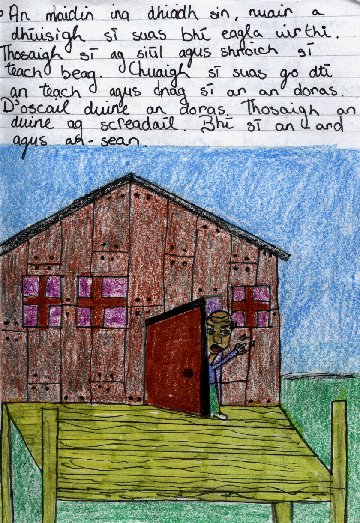 An maidin ina dhiadh sin, nuair a
dhúisigh sī suas bhī eagla uirthi.
Thosaigh sī ag siūl agus shroich sī
teach beag. Chuaigh sī suas go dtī
an teach agus chag sī an an doras.
D'oscail duine an doras. Thosaigh an
duine ag screadaíl. Bhī sī an ard
agus an-sean.